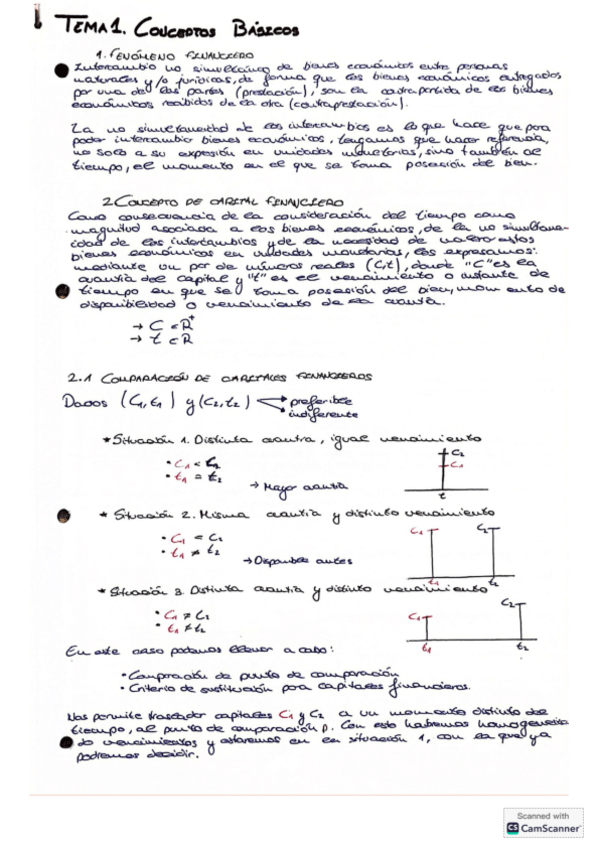 TEMA 1. CONCEPTOS BÁSICOS
1. FENÓMENO FINANCIERO
Intercambio no simultáneo de bienes económicos entre personas
naturales y/o jurídicas, de forma que los bienes económicos entregados
por una de las partes (prestación), son la contrapartida de los bienes
económicos recibidos de la otra (contraprestación).
La no simultaneidad de los intercambios es lo que hace que para
poder intercambiar bienes económicos, tengamos que hacer referencia,
no solo a su expresión en unidades monetarias, sino también al
tiempo, el momento en el que se toma posesión del bien.
2. CONCEPTO DE CAPITAL FINANCIERO
Como consecuencia de la consideración del tiempo como
magnitud asociada a los bienes económicos, de la no simultane-
idad de los intercambios y de la necesidad de valorar estos
bienes económicos en unidades monetarias, los expresamos:
mediante un par de números reales (C,t), donde "C" es la
cuantía del capital y "t" es el vencimiento o instante de
tiempo en que se toma posesión del bien, momento de
disponibilidad o vencimiento de la cuantía.
→ C ∈ R⁺
→ t ∈ R
2.1 COMPARACIÓN DE CAPITALES FINANCIEROS
Dados (C₁, t₁) y (C₂, t₂) preferible
indiferente
* Situación 1. Distinta cuantía, igual vencimiento
C₂
• C₁ < C₂
C₁
• t₁ = t₂
→ Mayor cuantía
t
* Situación 2. Misma cuantía y distinto vencimiento
C₁ C₂
• C₁ = C₂
• t₁ ≠ t₂
→ Disponible antes
t₁ t₂
* Situación 3. Distinta cuantía y distinto vencimiento
C₂
• C₁ ≠ C₂ C₁
• t₁ ≠ t₂
t₁ t₂
En este caso podemos llevar a cabo:
• Comparación de punto de comparación
• Criterio de sustitución para capitales financieros.
Nos permite trasladar capitales C₁ y C₂ a un momento distinto de
tiempo, al punto de comparación p. Con esto habremos homogeneiza
do vencimientos y estaremos en la situación 1, con la que ya
podremos decidir.
Scanned with
CS CamScanner